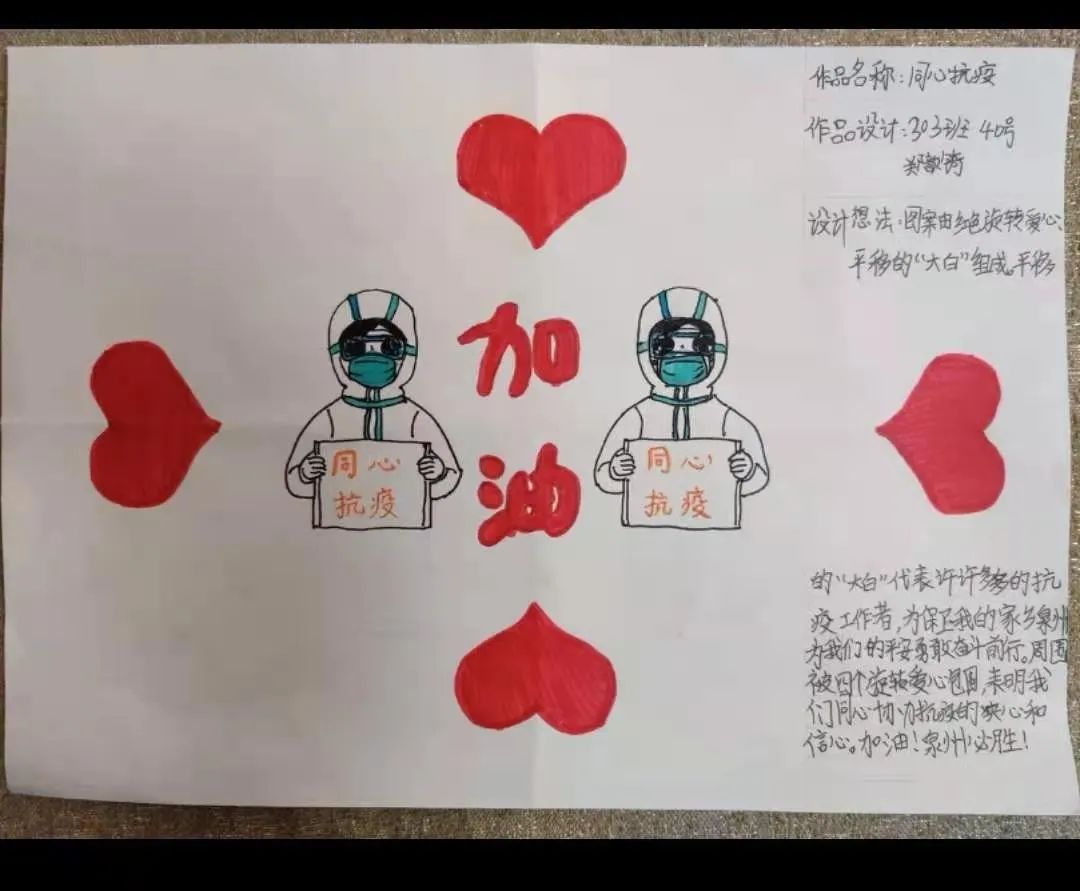 作品名称:同心抗疫
作品设计:303班 40号
设计想法:图案由红色旋转爱心、
平移的“大白”组成。平移
加
油
同心
抗疫
同心
抗疫
的“大白”代表许许多多的抗
疫工作者,为保卫我的家乡泉州
为我们的平安勇敢奋斗前行。周围
被四个旋转爱心包围,表明我
们同心协力抗疫的决心和
信心。加油!泉州必胜!